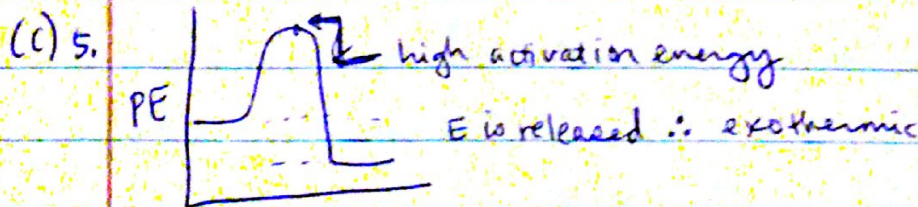 (C) 5.
high activation energy
PE
E is released ∴ exothermic